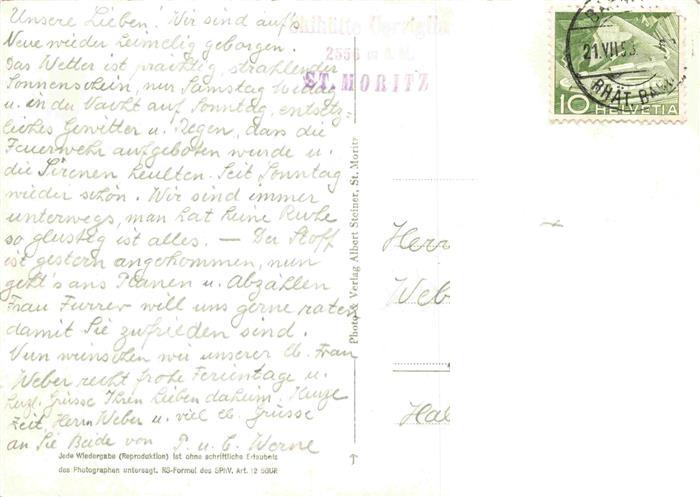 Unsere Lieben! Wir sind auf's
Neue wieder heimelig geborgen.
Das Wetter ist prächtig, strahlender
Sonnenschein, nur Samstag
u. in der Nacht auf Sonntag, entsetz-
liches Gewitter u. Regen, dass die
Feuerwehr aufgeboten wurde u.
die Sirenen heulten. Seit Sonntag
wieder schön. Wir sind immer
unterwegs, man hat keine Ruhe
so glustig ist alles. — Der Stoff
ist gestern angekommen, nun
geht's ans Planen u. Abzählen
Frau Furrer will uns gerne raten
damit Sie zufrieden sind.
Nun wünschen wir unserer lb. Frau
Weber recht frohe Ferientage u.
herzl. Grüsse Ihren Lieben daheim.
Zeit, Herrn Weber u. viel lb. Grüsse
an Sie Beide von P. u. C. Werne
Skihütte
2556 m ü. M.
ST. MORITZ
21.VII.53
RHÄT. BAHN
10 HELVETIA
Photo & Verlag Albert Steiner, St. Moritz
Herr
Web
Hal
Jede Wiedergabe (Reproduktion) ist ohne schriftliche Erlaubnis
des Photographen untersagt. RS-Formel des SPhV. Art. 12 SGUR